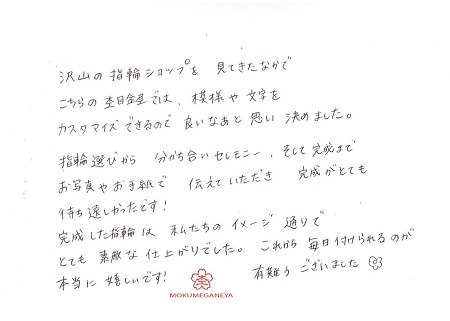 沢山の指輪ショップを 見てきたなかで
こちらの杢目金屋では、模様や文字を
カスタマイズできるので 良いなあと思い 決めました。
指輪選びから 分かち合いセレモニー、そして完成まで
お写真やお手紙で 伝えていただき 完成がとても
待ち遠しかったです!
完成した指輪は 私たちの イメージ 通りで
とても 素敵な仕上がりでした。 これから 毎日付けられるのが
本当に 嬉しいです! 有難う ございました
MOKUMEGANEYA